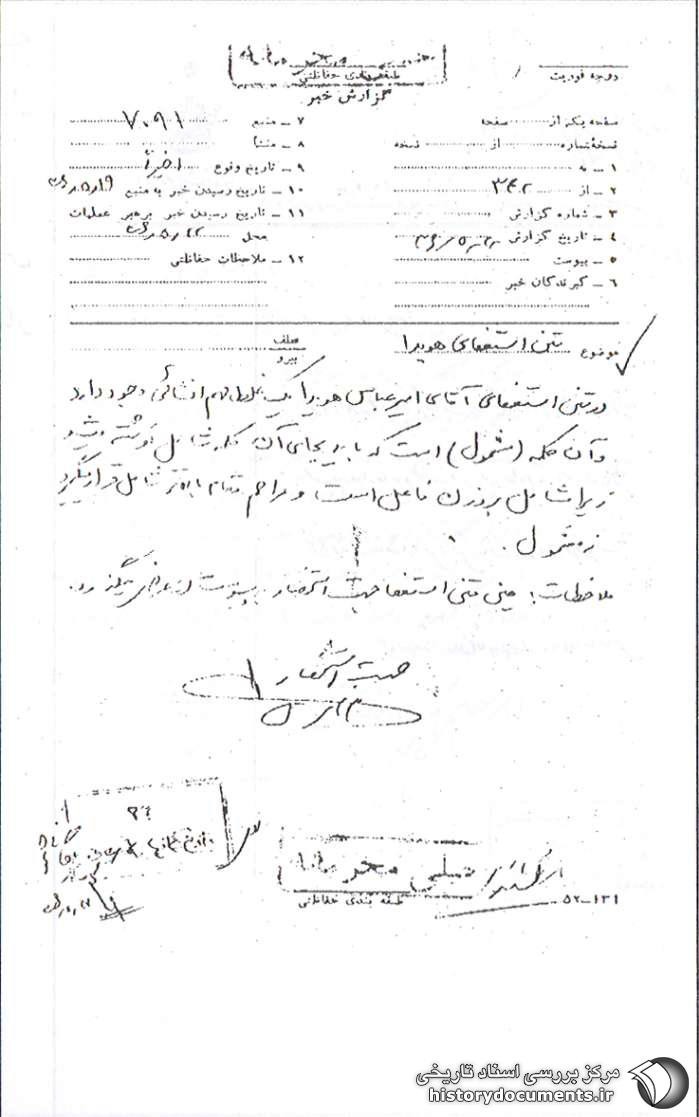 طبقه‌بندی حفاظتی
درجه فوریت
گزارش خبر
صفحه یک از صفحه
نسخه شماره از نسخه
۱ ــ به
۲ ــ از ۳۴۲
۳ ــ شماره گزارش
۴ ــ تاریخ گزارش
۵ ــ پیوست
۶ ــ گیرندگان خبر
۷ ــ منبع ۷۰۹۱
۸ ــ منشأ
۹ ــ تاریخ وقوع اخیراً
۱۰ ــ تاریخ رسیدن خبر به منبع
۱۱ ــ تاریخ رسیدن خبر برهبر عملیات
محل
۱۲ ــ ملاحظات حفاظتی
موضوع متن استعفای هویدا
عطف
پیرو
در متن استعفای آقای امیرعباس هویدا یک غلط مهم انشائی وجود دارد
و آن کلمه (مشمول) است که باید بجای آن کلمه شامل نوشته میشد
زیرا شامل بر وزن فاعل است و مراحم شامل قرار میگیرد
نه مشمول.
ملاحظات: عین متن استعفا جهت استحضار به پیوست از عرض میگذرد.
جهت استحضار
خیلی محرمانه
طبقه بندی حفاظتی
۵۲ــ۱۳۱
مرکز بررسی اسناد تاریخی
historydocuments.ir